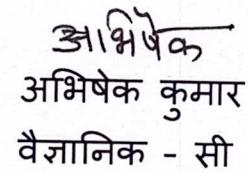 अभिषेक
अभिषेक कुमार
वैज्ञानिक - सी